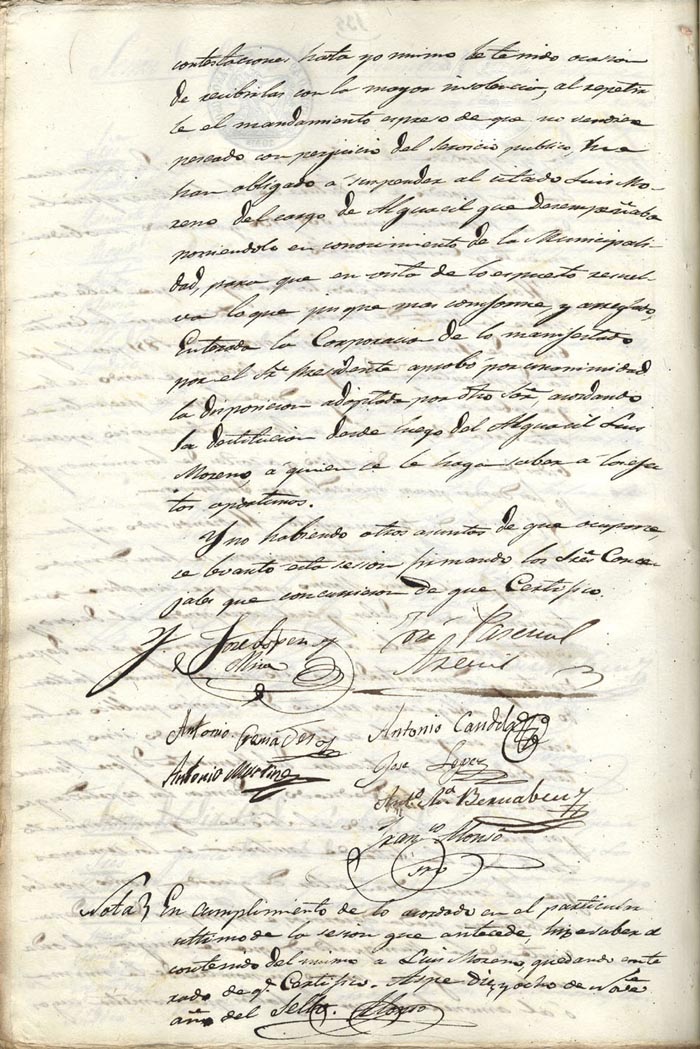 contestaciones, hasta yo mismo he tenido ocasion
de recibirlas con la mayor insolencia, al repetir
le el mandamiento espreso de que no vendiera
pescado con perjuicio del servicio publico, me
han obligado á suspender al citado Luis Mo-
reno del cargo de Alguacil que desempeñaba
poniendolo en conocimiento de la Municipali-
dad, para que en vista de lo espuesto resuel-
va lo que juzgue mas conforme, y arreglado,
Enterada la Corporacion de lo manifestado
por el Sr. Presidente aprobó por unanimidad
la disposicion adoptada por dtro Sor, acordando
la destitucion desde luego del Alguacil Luis
Moreno, a quien se le haga saber a los efec-
tos oportunos.
Y no habiendo otros asuntos de que ocuparse,
se levantó esta sesion firmando los Sres Conce-
jales que concurrieron de que Certifico.
José Lopez
Mira
José Pascual
Antonio
Antonio Candela
Antonio Martinez
Jose Lopez
Anto Ma Bernabeu
Franco Alonso
Srio
Nota En cumplimiento de lo acordado en el particular
ultimo de la sesion que antecede, hice saber el
contenido del mismo a Luis Moreno, quedando ente
rado de q. Certifico. Aspe diez y ocho de Nove
año del Sello. Alonso